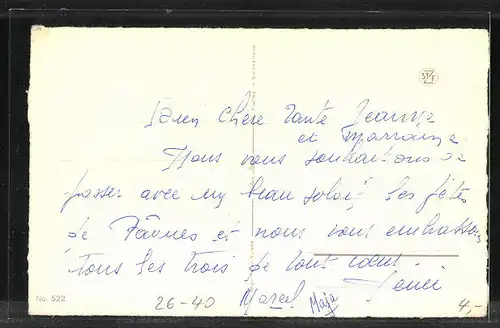 Bien Chère Tante Jeanne
et Marraine
Nous vous souhaitons de
passer avec un beau soleil les fêtes
de Pâques et nous vous embrassons
tous les trois de tout coeur.
26-40 Marcel Maja
4,-
No. 622